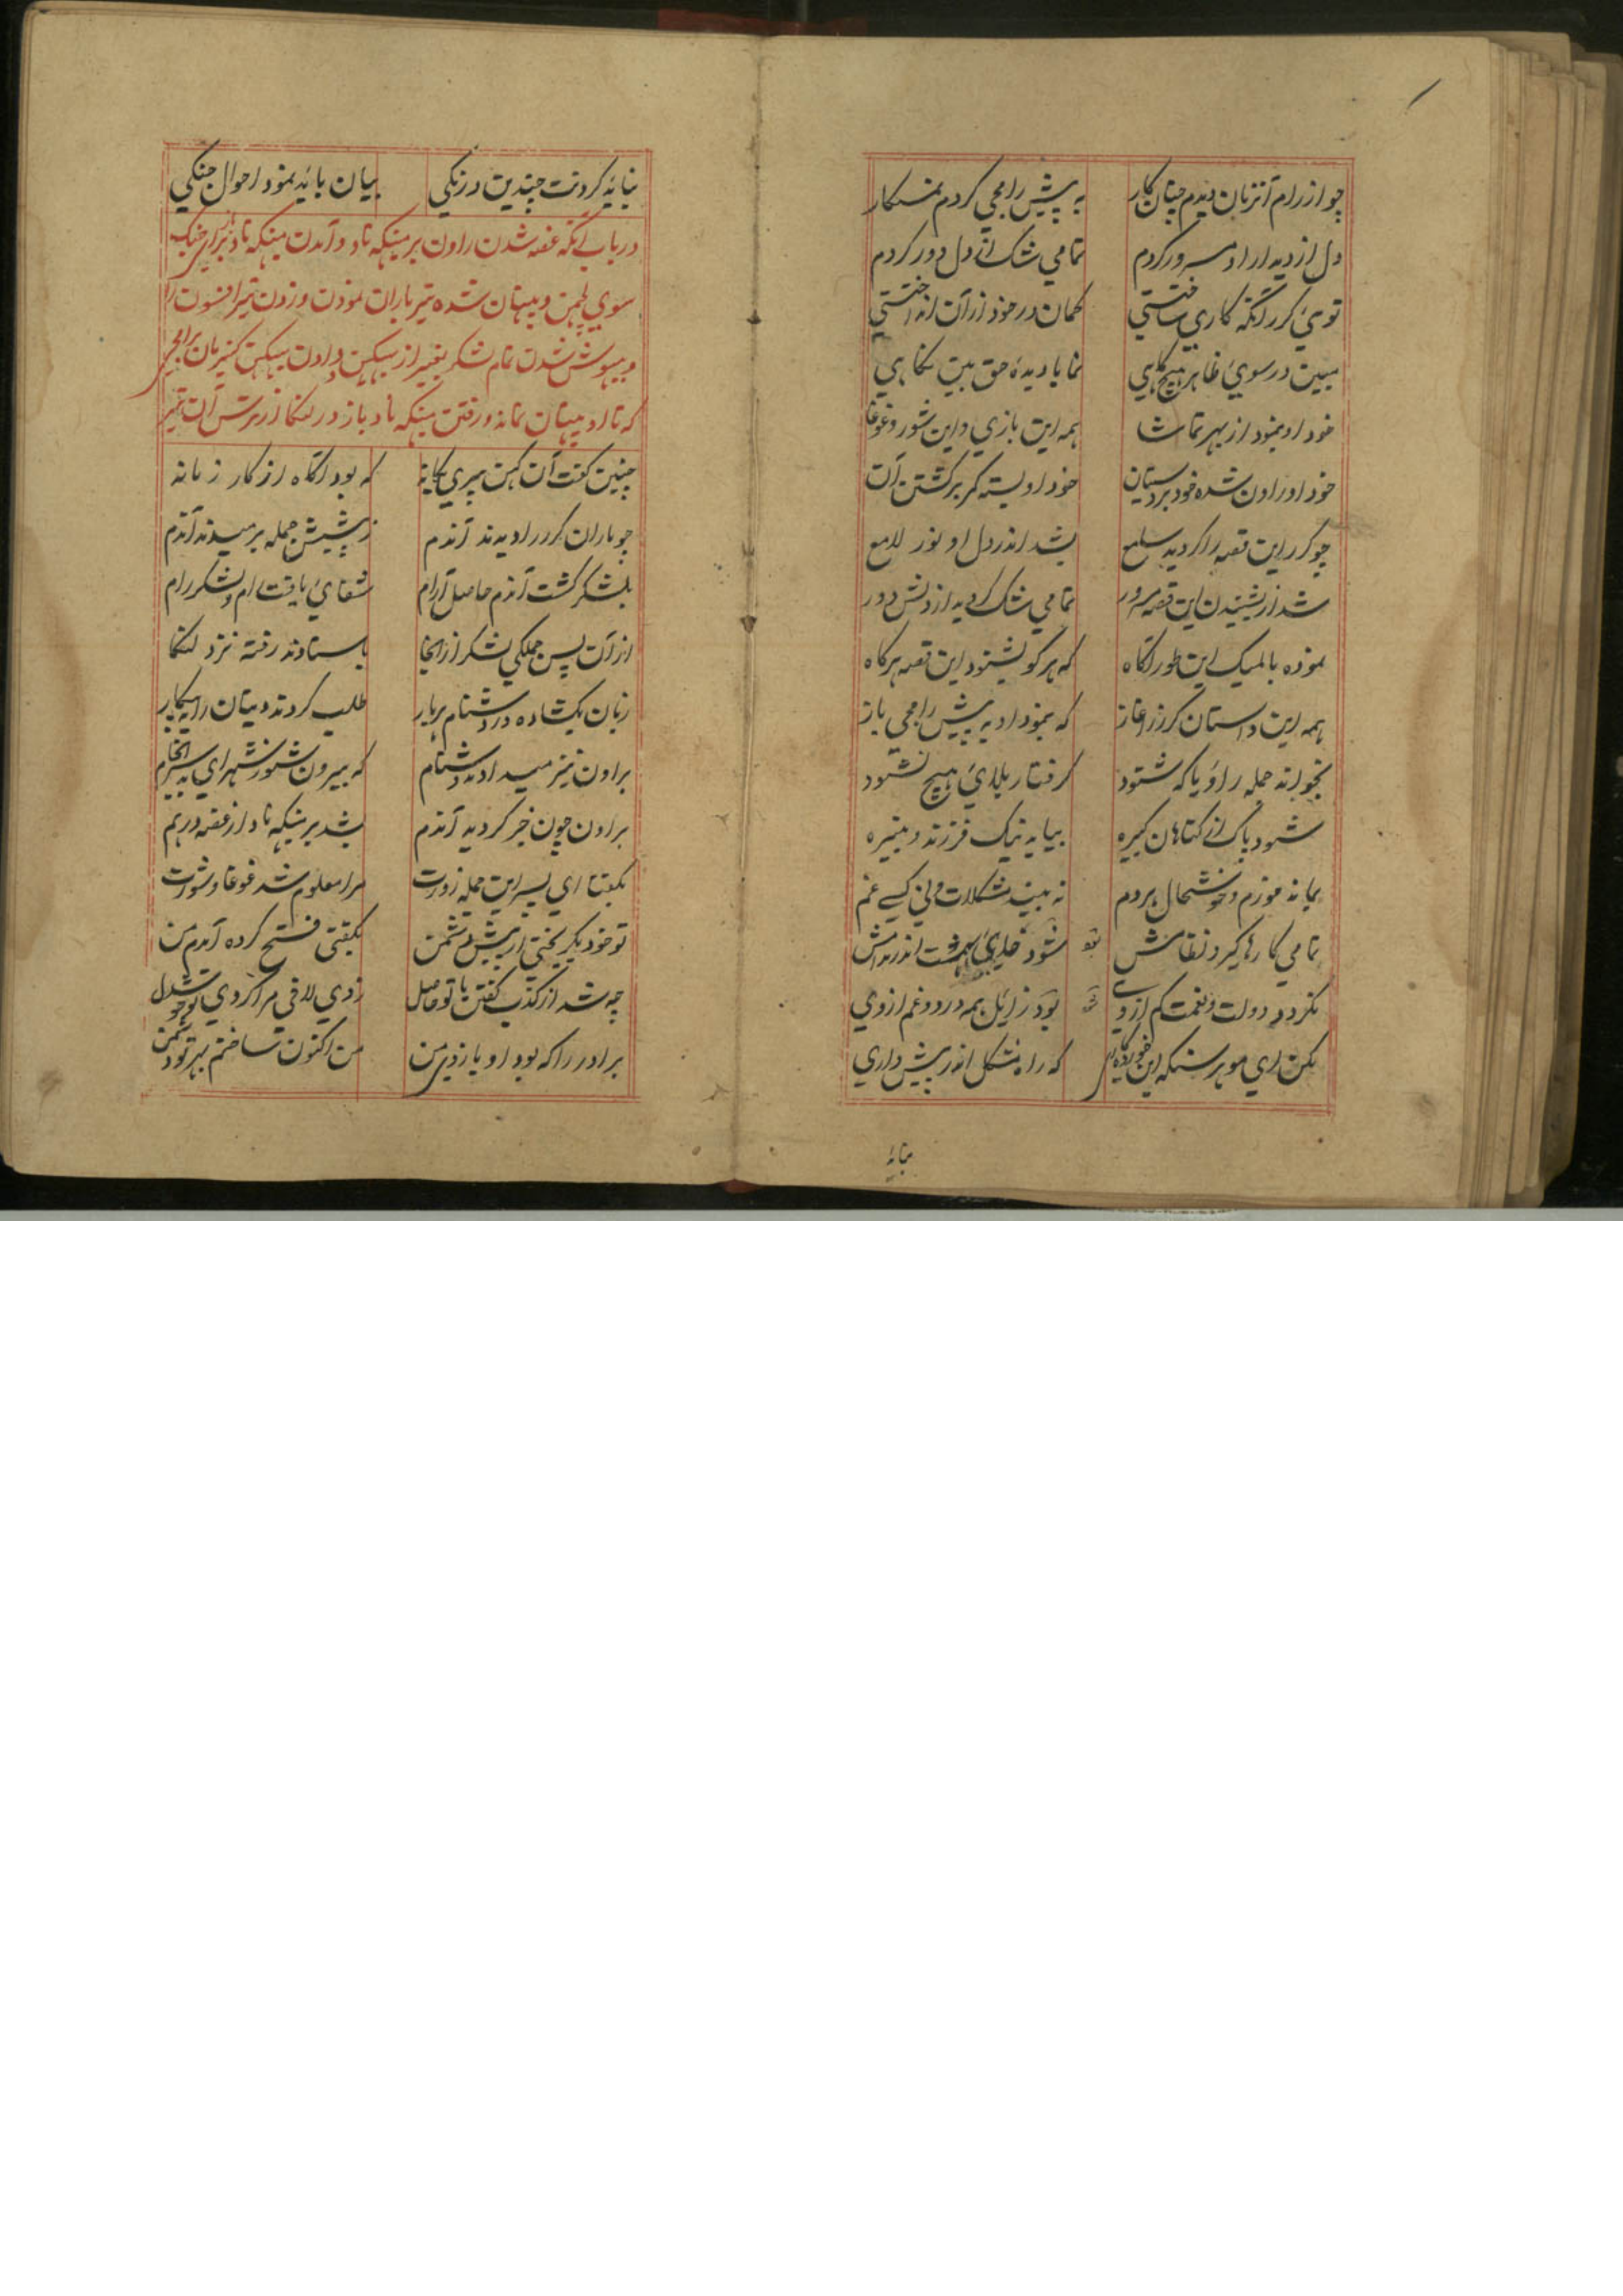 چو از رام آنزمان دیدم چنان کار به پیش رامجی کردم نمسکار
دل از دیدار او مسرور کردم تمامی شک از دل دور کردم
توئی گرر آنکه کاری ساختستی کمان در خود از آن انداختستی
مبین در سوئی ظاهر هیچ گاهی نما با دیدهٔ حق بین نگاهی
خود او بنمود از بهر تماشا همه این بازی و این شور و غوغا
خود او راون شده خود برد سیتان خود او بسته کمر بر کشتن آن
چو گرر این قصه را گردید سامع بشد اندر دل او نور لامع
شد از بشنیدن این قصه مسرور تمامی شک گردید از دلش دور
نموده بالمیک این طور آگاه که هر کو بشنود این قصه هرگاه
همه این داستان گرر ز آغاز که بنمود او به پیش رامجی باز
بخواند جمله را و یا که شنود گرفتار بلائی هیچ نشود
شود پاک از گناهان کبیره بیابد نیک فرزند و نبیره
بماند خورم و خوشحال هردم نه بیند مشکلات و نی کسی غم
تمامی کارها گیرد نظامش شود جاری بهشت اندر
نگردد دولت و نعمت کم از وی بود زایل همه درد و غم از وی
مکن ای موهر سنگه این که راه مشکل اندر پیش داری
نباید کردنت چندین درنگی بیان باید نمود احوال جنگی
در باب آنکه غصه شدن راون بر میگهه ناد و آمدن میگهه ناد برای جنگ
سوی لچمن و پنهان شده تیر باران نمودن و زدن تیر افسون را
و بیهوش شدن تمام لشکر بغیر از ببیکهن و دادن ببیکهن
که تا او پنهان نماند و رفتن میگهه ناد باز در لنکا از ترس آن تیر
چنین گفت آن کهن پیری یگانه که بود آگاه از کار زمانه
چو ماران گرر را دیدند آندم ز پیشش جمله برمیدند آندم
بلشکر گشت آندم حاصل آرام شفائی یافت ام لشکر رام
از آن پس جملگی لشکر از آنجا باستادند رفته نزد لنکا
زبان بکشاده در دشنام هر بار طلب کردند دیتان را به پیکار
براون نیز میدادند دشنام که بیرون شو ز شهر ای بد سرانجام
براون چون خبر گردید آندم بشد بر میگهه ناد از غصه درهم
بگفتا ای پسر این جمله زورت مرا معلوم شد غوغا و شورت
تو خود بگریختی از پیش دشمن بگفتی فتح کرده آمدم من
چه شد از کذب گفتن با تو حاصل زدی لافی مرا کردی تو خوشدل
برادر را که بود او بازوی من من اکنون ساختم بهر تو دشمن
نباید